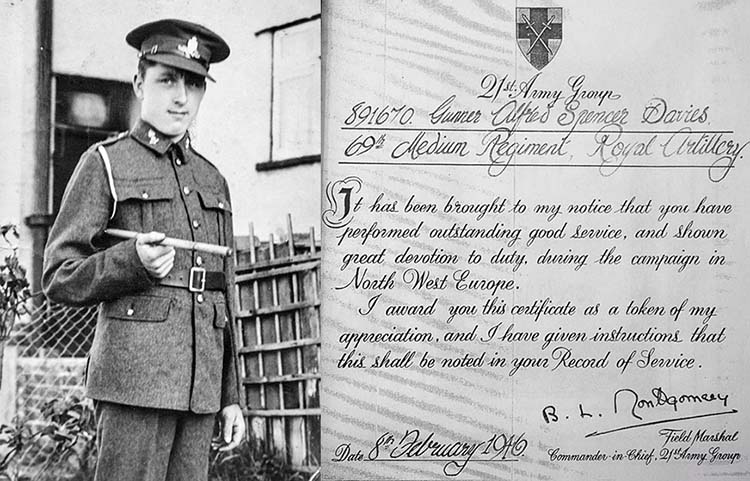 21st. Army Group
891670. Gunner Alfred Spencer Davies.
69th Medium Regiment, Royal Artillery.
It has been brought to my notice that you have
performed outstanding good service, and shown
great devotion to duty, during the campaign in
North West Europe.
I award you this certificate as a token of my
appreciation, and I have given instructions that
this shall be noted in your Record of Service.
B. L. Montgomery
Field Marshal
Date 8th February 1946.
Commander-in-Chief, 21st Army Group